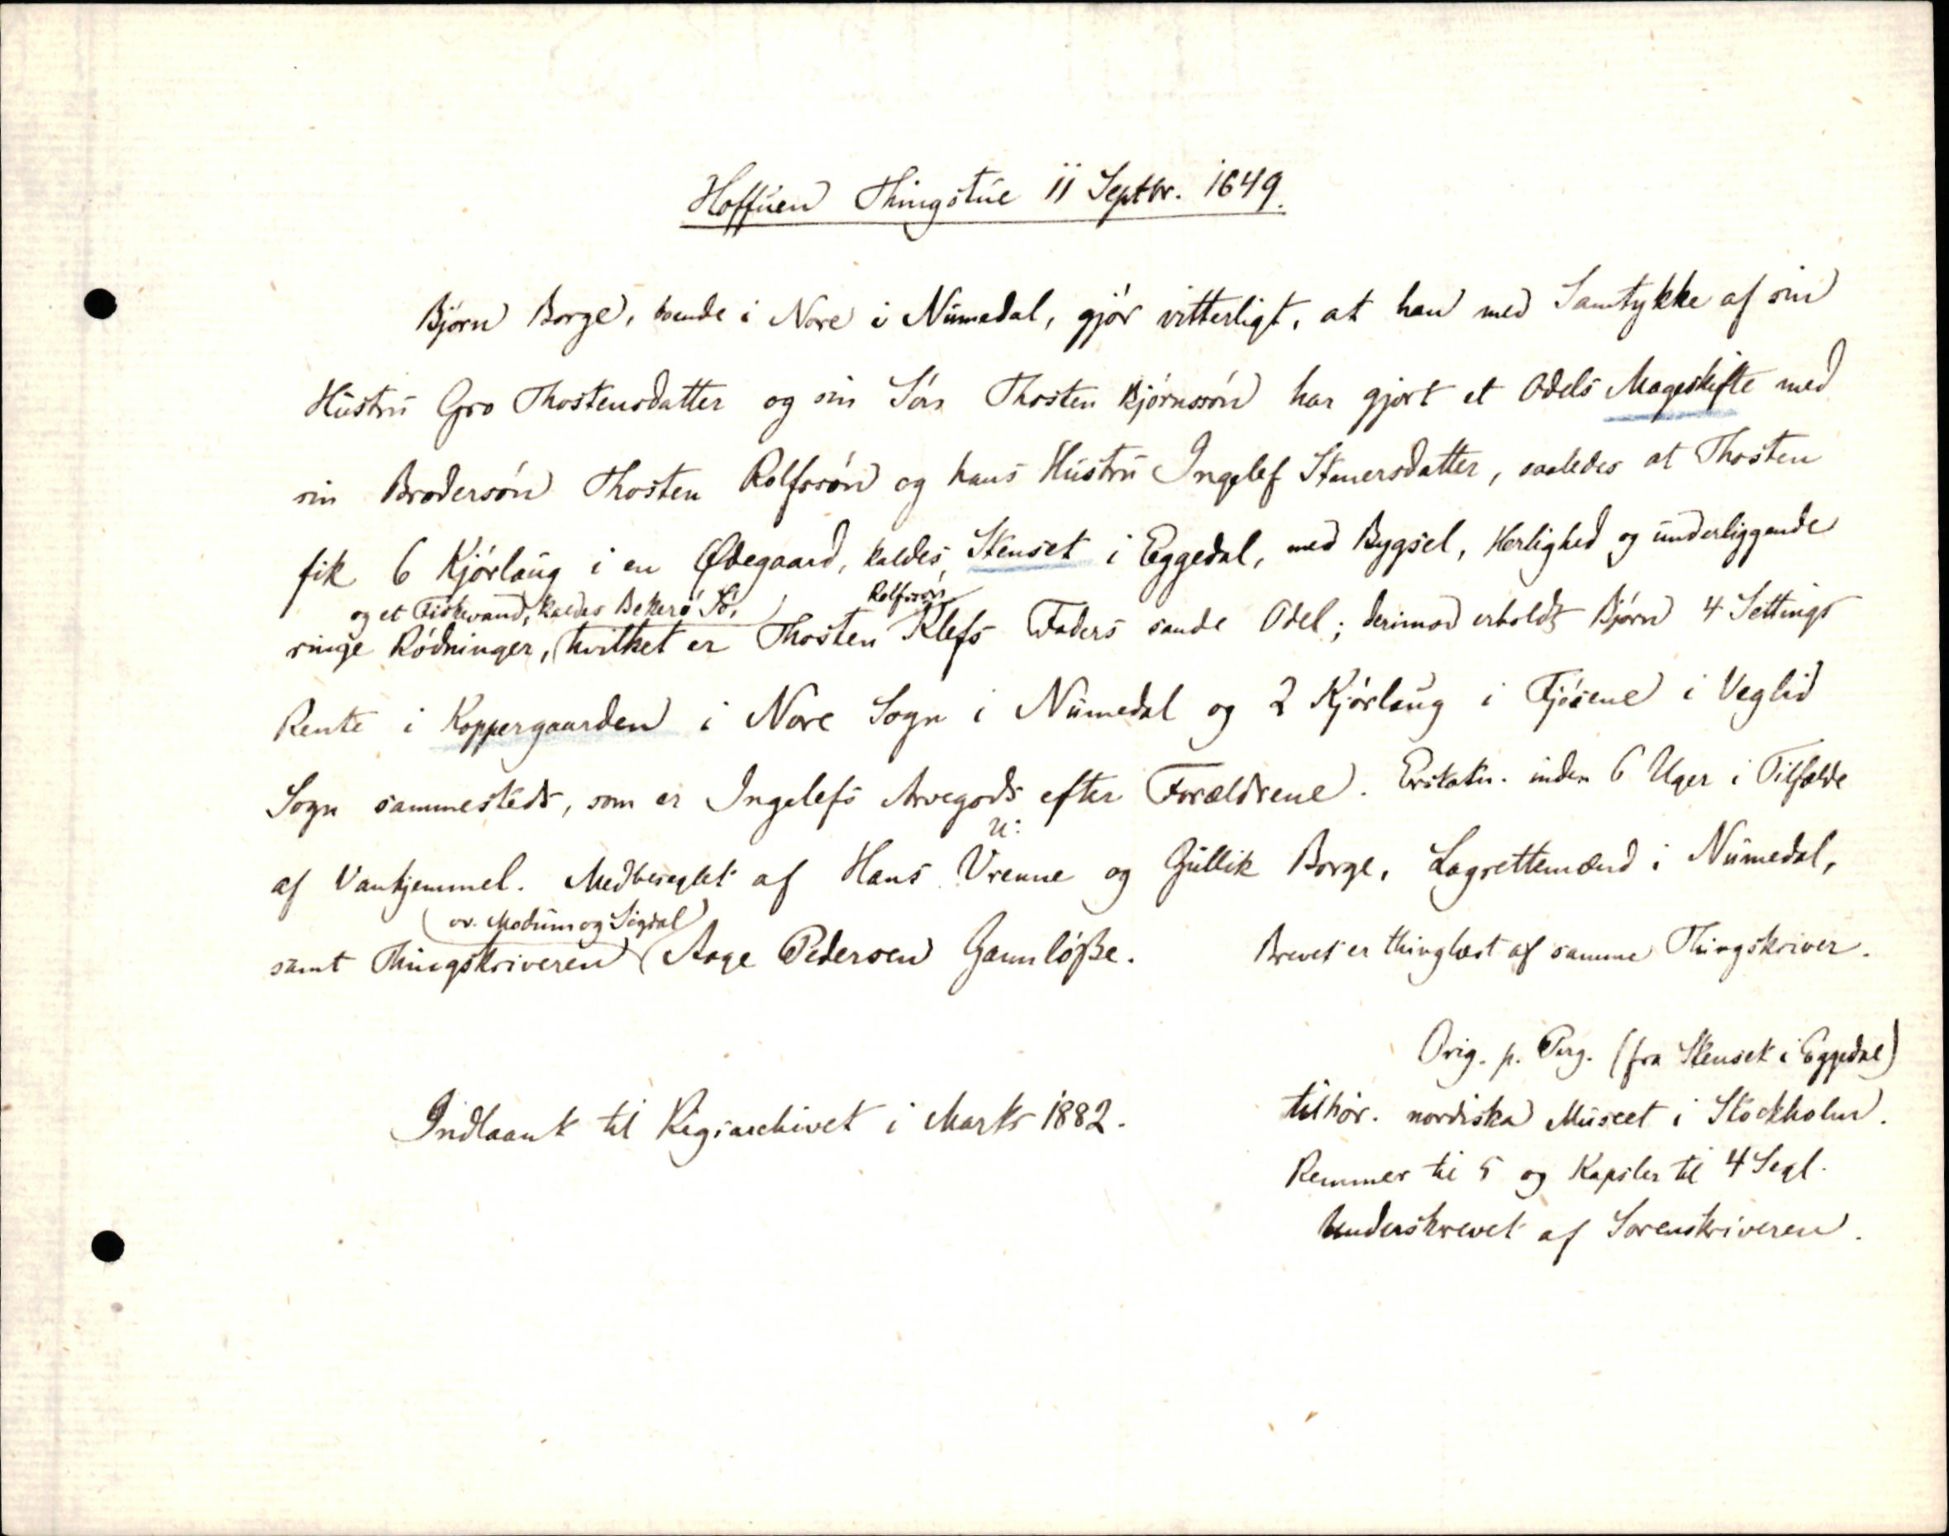 Hoffuen Thingstue 11 Septbr. 1649.
Bjørn Borge, boende i Nore i Numedal, gjør vitterligt, at han med Samtykke af sin
Hustru Gro Thostensdatter og sin Søn Thosten Bjørnssøn har gjort et Odels Mageskifte med
sin Brodersøn Thosten Rolfssøn og hans Hustru Ingelef Stenersdatter, saaledes at Thosten
fik 6 Kjørlaug i en Ødegaard, kaldes Stenset i Eggedal, med Bygsel, Herlighed og underliggende
og et Fiskevand, kaldes Bekerø Sø, Rolfssøn
ringe Rødninger, hvilket er Thosten Klefs Faders sande Odel; derimod erholdt Bjørn 4 Settings
Rente i Koppergaarden i Nore Sogn i Numedal og 2 Kjørlaug i Fjøsene i Veglid
Sogn sammesteds, som er Ingelefs Arvegods efter Forældrene. Erstatn. inden 6 Uger i Tilfælde
af Vanhjemmel. Medbeseglet af Hans Vrenne og Gullik Borge, Lagrettemænd i Numedal,
U:
ov. Modum og Sigdal
samt Thingskriveren Aage Pedersen Gaunløsse. Brevet er thinglæst af samme Thingskriver.
Orig. p. Perg. (fra Stenset i Eggedal)
Indlaant til Rigsarchivet i Marts 1882.
tilhør. nordiska Museet i Stockholm.
Remmer til 5 og Kapsler til 4 Segl.
Underskrevet af Sorenskriveren.